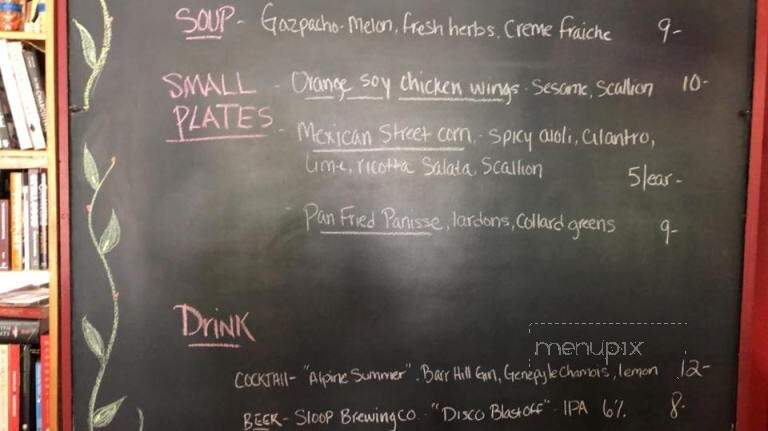 SOUP - Gazpacho - Melon, fresh herbs, Creme fraiche 9-
SMALL PLATES - Orange soy chicken wings - Sesame, Scallion 10-
- Mexican Street corn, - spicy aioli, cilantro,
lime, ricotta Salata, Scallion 5/ear -
- Pan Fried Panisse, lardons, Collard greens 9-
DRINK
menupix
COCKTAIL - "Alpine Summer" . Barr Hill Gin, Genepy le Chamois, lemon 12-
BEER - Sloop Brewing Co - "Disco Blastoff" - IPA 6% 8-